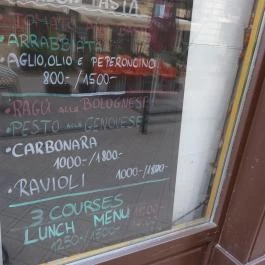 PASTA
• ARRABBIATA
• AGLIO, OLIO e PEPERONCINO
800-/1500-
• RAGÙ alla BOLOGNESE
• PESTO alla GENOVESE
• CARBONARA
1000-/1800-
• RAVIOLI 1000-/1800-
3 COURSES
LUNCH MENU
1250-/1500-